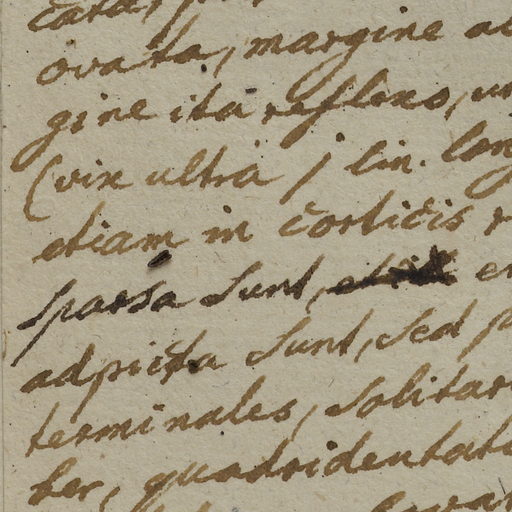 ovata, margine
gine ita reflexo,
(vix ultra j lin.
etiam in corticis
sparsa sunt,
adpicta sunt, sed
terminales,
ter, quadridentat